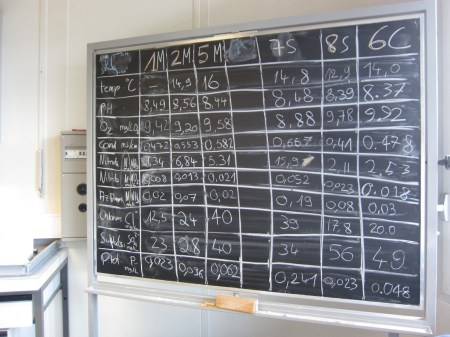 1M 2M 5M 7S 8S 6C
temp °C – 14,9 16 14,8 12,9 14.0
PH 8,49 8,56 8,44 8,48 8,39 8.37
O₂ mg/l 9,42 9,20 9,58 8,88 9,78 9,92
Cond 0,472 0,553 0,582 0,667 0,41 0,478
Nitrat 6,84 5,31 15,9 2,11 2,53
Nitrit 0,008 0,013 0,021 0,052 0,023 0.018
0,02 0,07 0,02 0,19 0,08 0,03
Chlorid 12,5 24 40 39 17.8 20.0
Sulfat 23 28 40 34 56 49
0,023 0,036 0,062 0,241 0,023 0.048